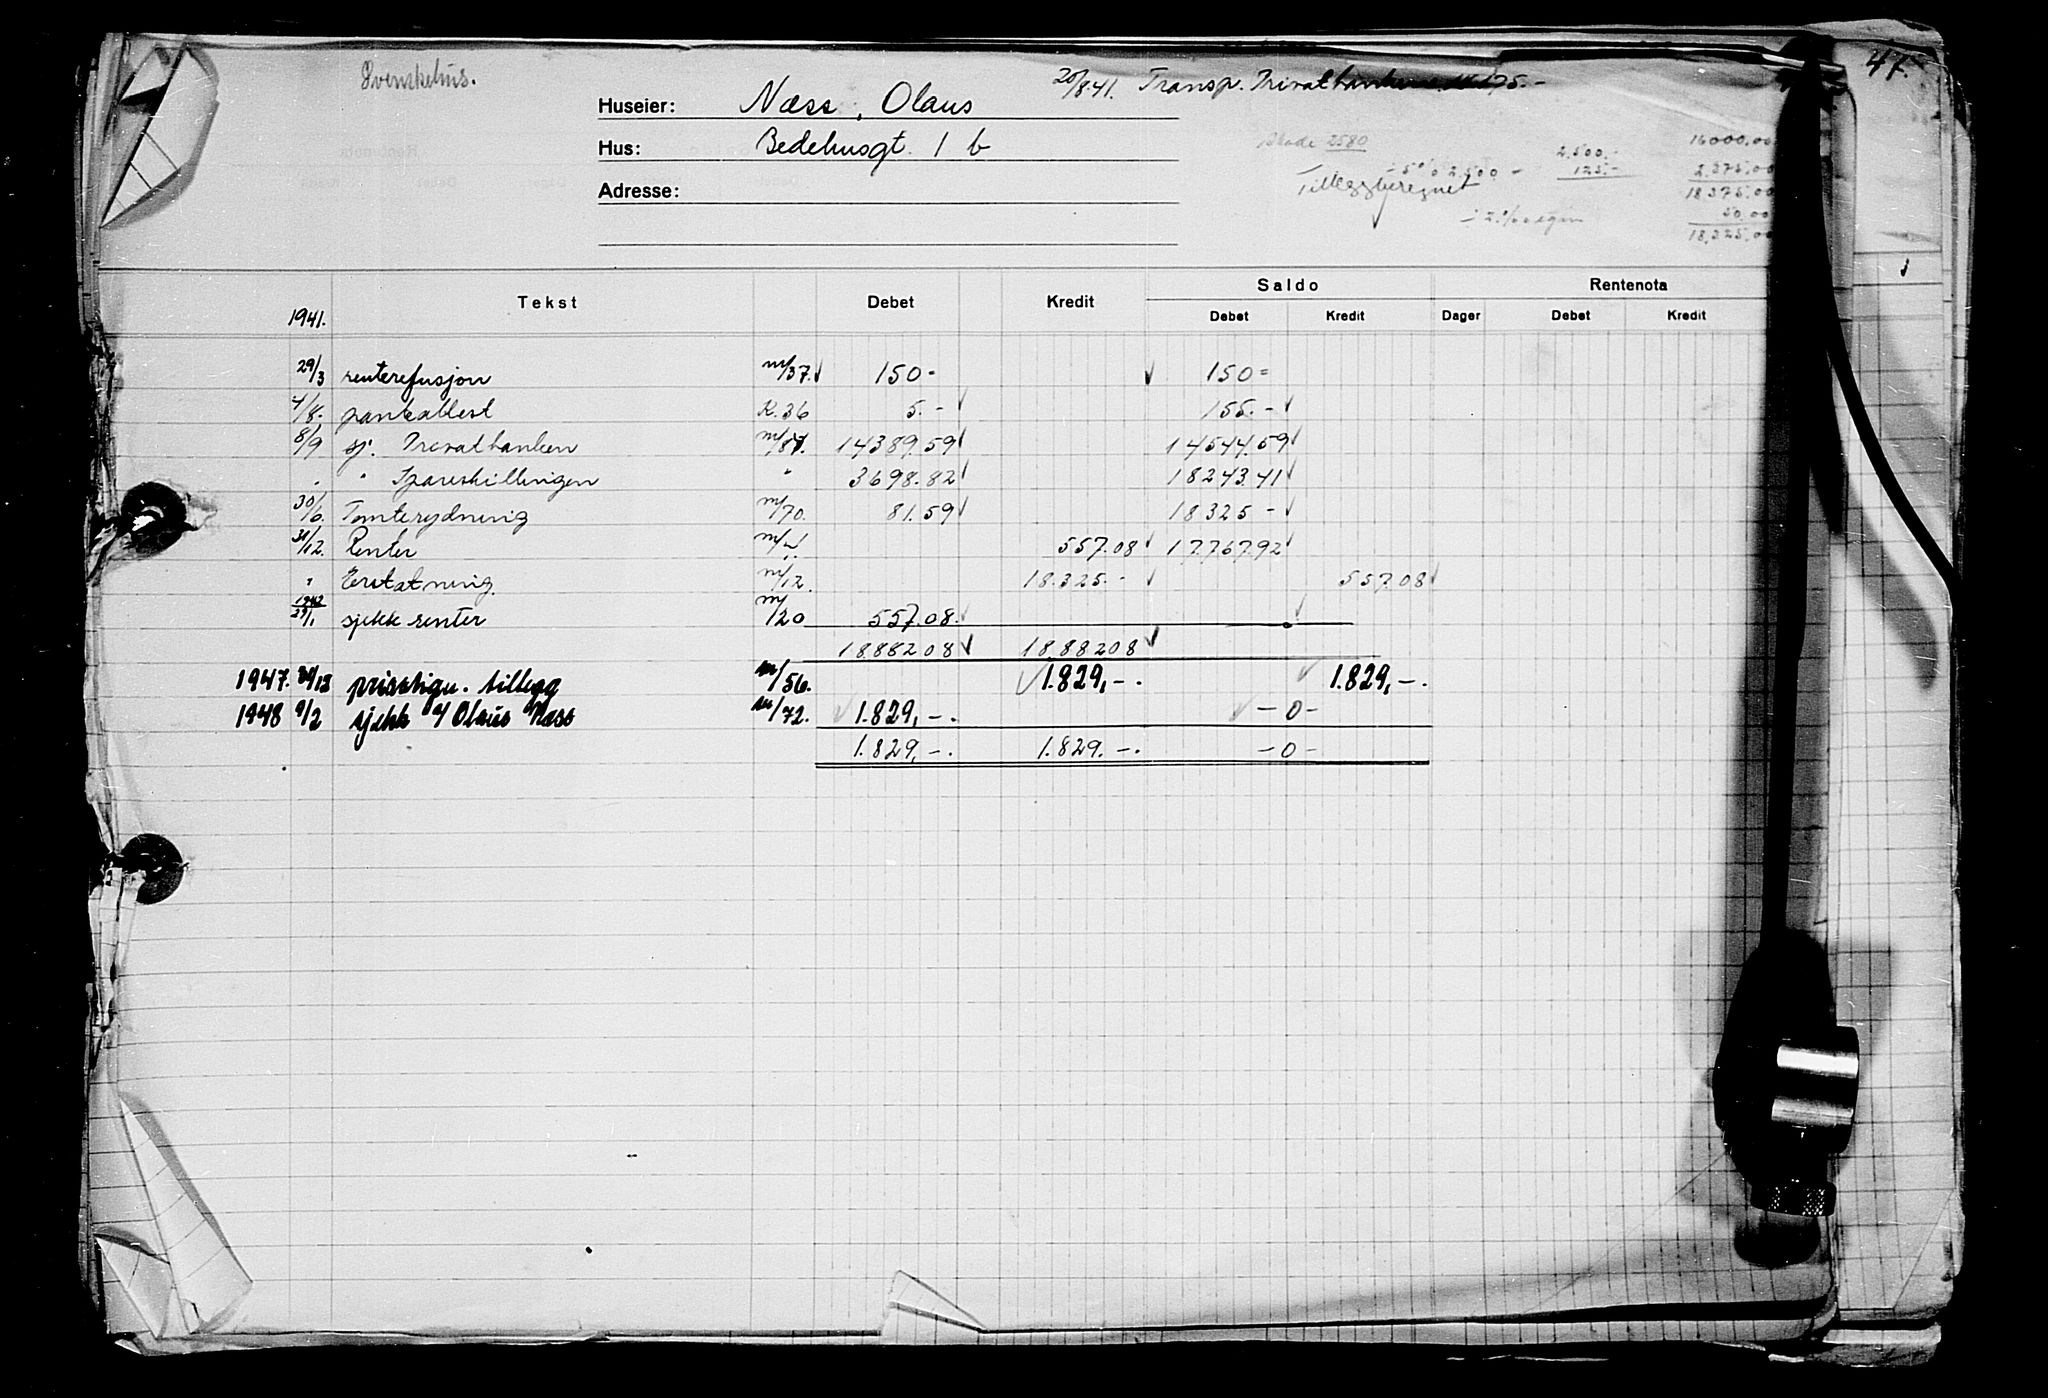 Svenskehus.
47.
20/8-41. Transp. Privatbanken 14175.-
Huseier: Næss, Olaus
Hus: Bedehusgt. 1 b
Adresse:
Skade 2580
- 5% 2500 - 2,500.- 16000,00
125.- 2,375,00
Tilleggberegnet 18,375,00
- 2% egen 50,00
18,325,00
Tekst Debet Kredit Saldo Rentenota
1941. Debet Kredit Dager Debet Kredit
29/3 renterefusjon m/37. 150- 150=
4/8. panteattest K.36 5.- 155.-
8/9 sj. Privatbanken m/87. 14389.59 14544.59
" " Spareskillingen " 3698.82 18243.41
30/6. Tomterydning m/70. 81.59 18325-
31/12. Renter 557.08 17767.92
" Erstatning m/12. 18.325.- 557.08
1942 29/1 sjekk renter m/20 557.08.
18.882 08 18.882 08
1947. 30/12 prisstign. tillegg m/56. 1.829,-. 1.829,-.
1948 9/2 sjekk t/ Olaus Næss m/72. 1.829,-. -0-
1.829,-. 1.829.-. -0-